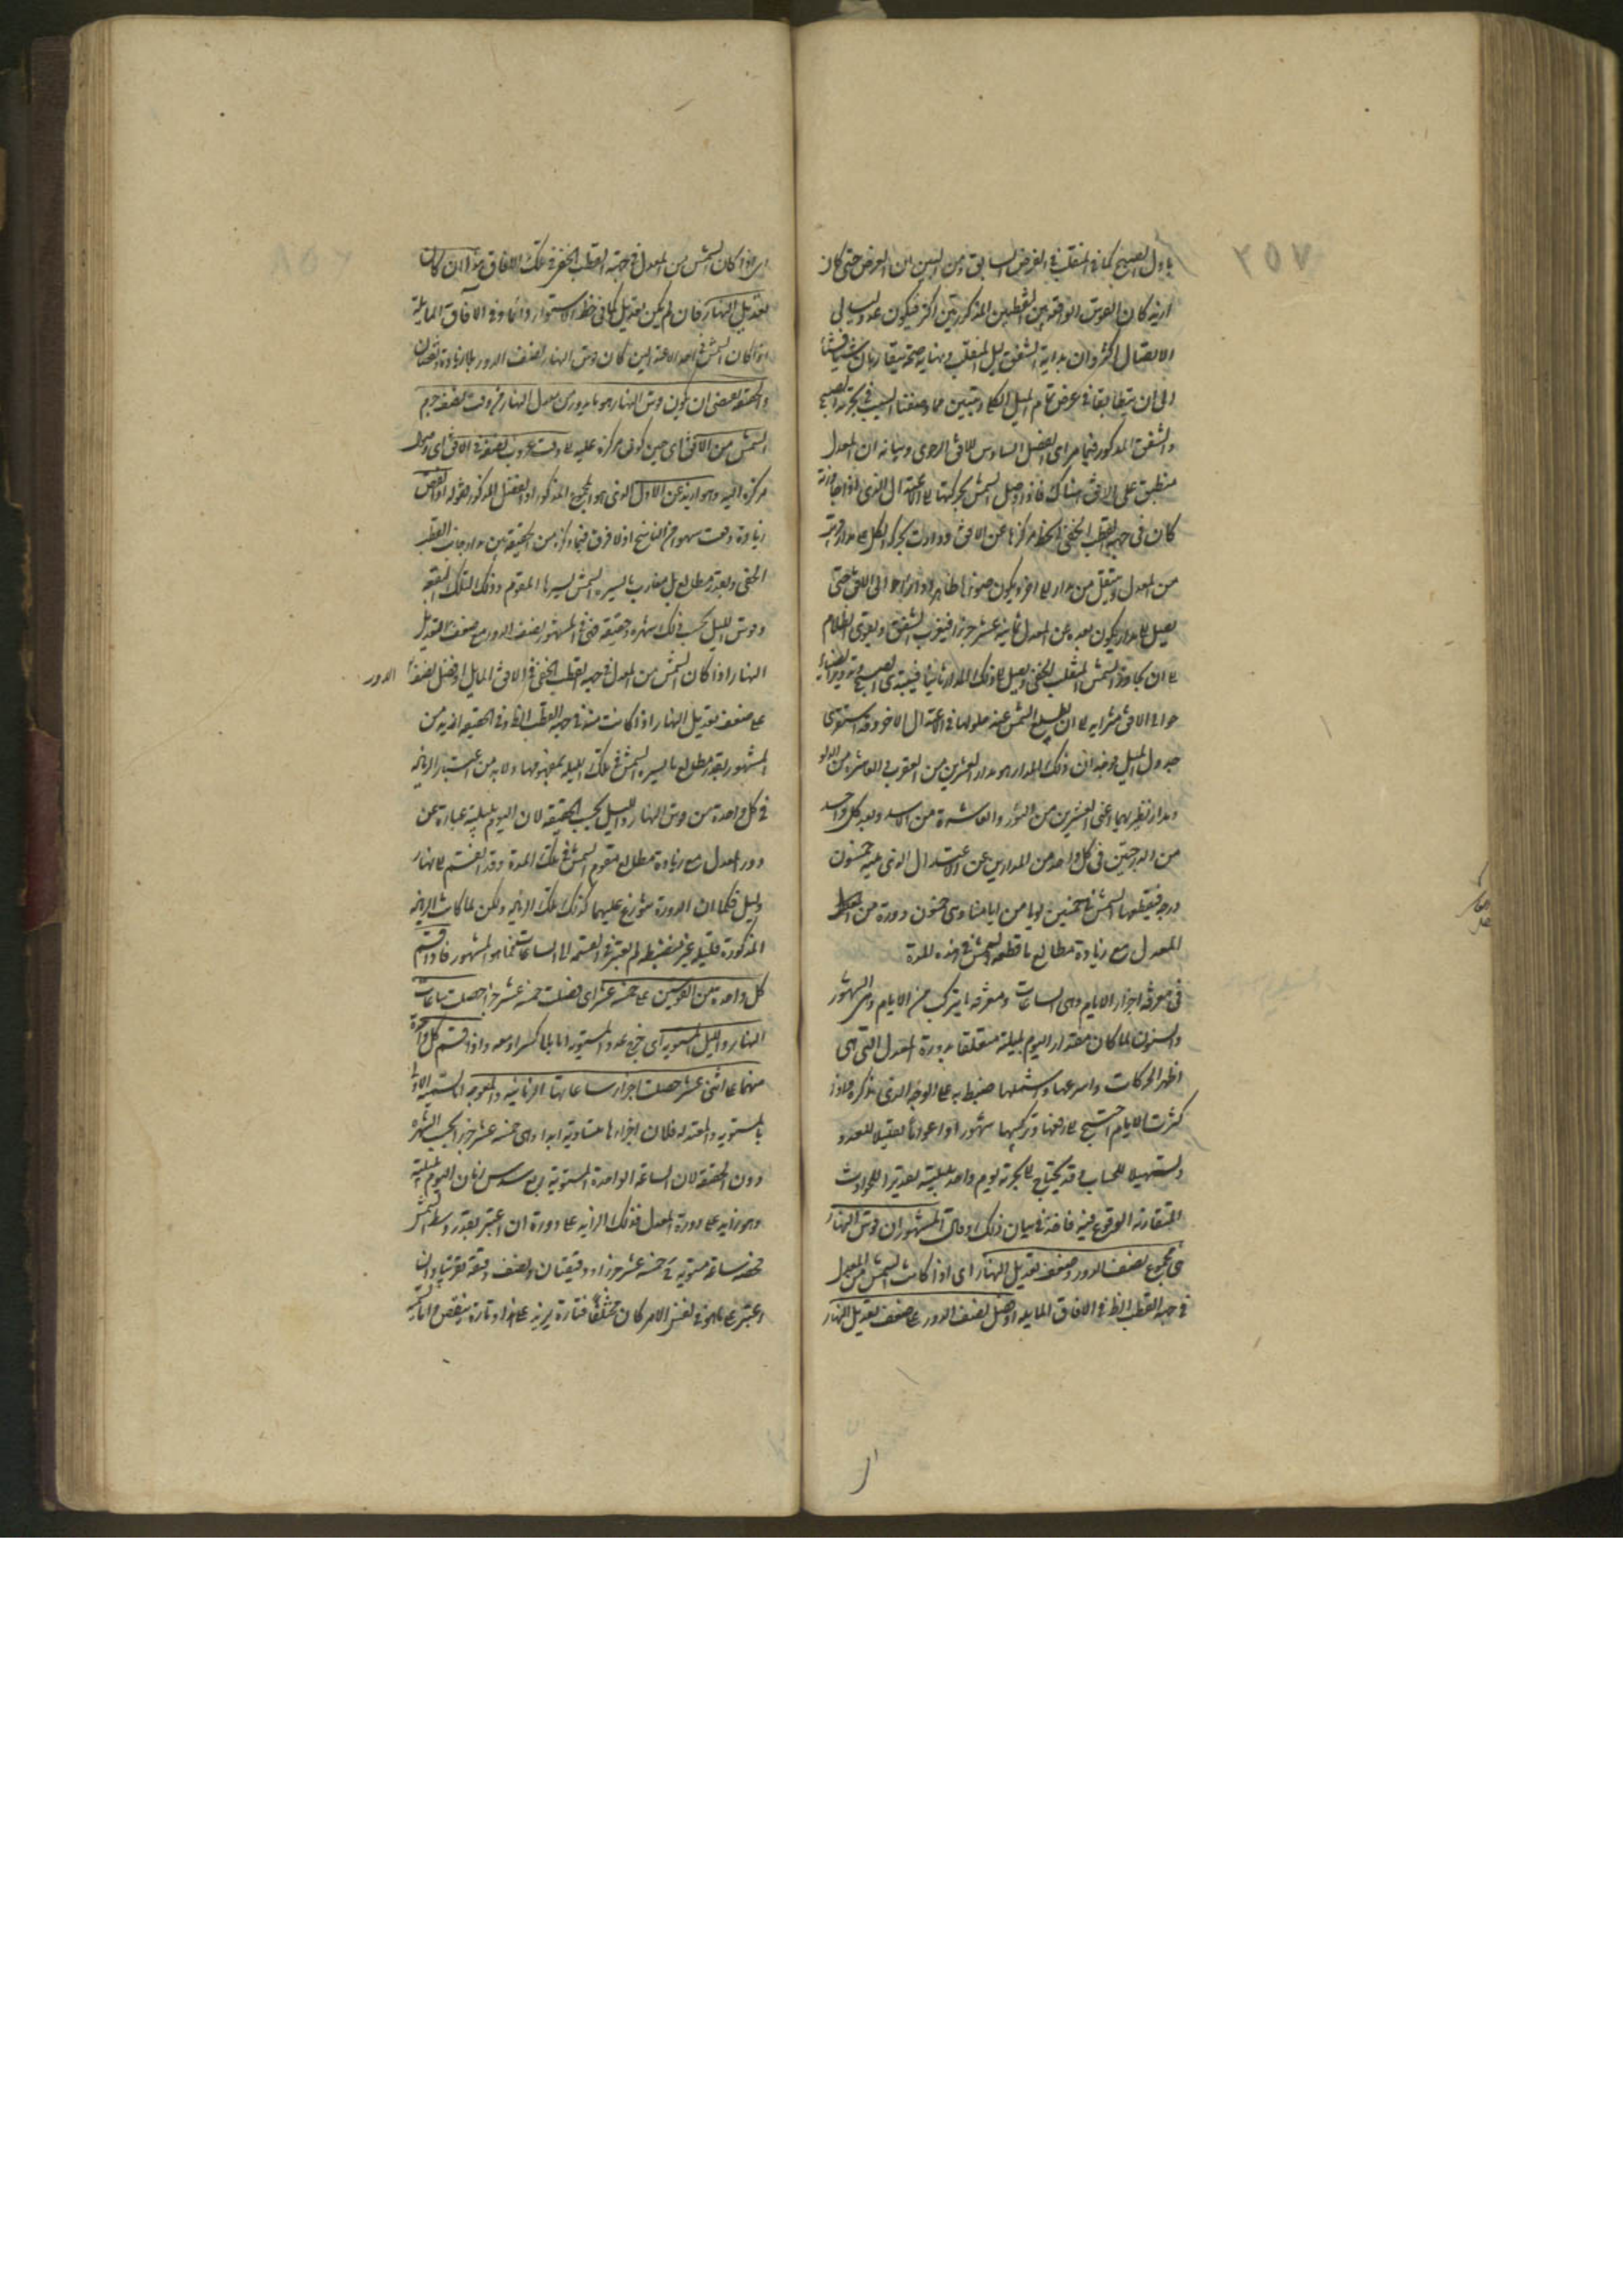 ٢٥٧
باول الصبح كما في المنقلب في العرض السابق ومن البين ان العرض حتى كان
ازيد كان القوس الواقعة بين النقطتين المذكورتين اكثر فيكون عدد ليالي
الاتصال اكثر وان بداية الشفق ليل المنقلب ونهاية صبحه يتقاربان شيئا فشيئا
الى ان يتطابقا في عرض تمام الميل الكلي وتبين مما وصفنا السبب في تحرية الصبح
والشفق المذكور فيما مر اى الفصل السادس للافق الرحوى وبيانه ان المعدل
منطبق على الافق هناك فاذا وصل الشمس بحركتها الى الاعتدال الذى اذا جاوزته
كان في جهة القطب الخفى انحط مركزها عن الافق ودارت بحركة الكل على مدار قريب
من المعدل وتنتقل من مدار الى اخر ويكون ضوءها ظاهرا دائرا حوالى الافق حتى
يصل الى مدار يكون بعده عن المعدل ثمانية عشر جزءا فيغرب الشفق ويقوى الظلام
الى ان يجاوز الشمس المنقلب الخفى ويصل الى ذلك المدار ثانيا فيبتدى الصبح ويدور الضياء
حوالى الافق متزايدا الى ان يطلع الشمس عند حلولها في الاعتدال الاخر وقد استقرى
جدول الميل فوجد ان ذلك المدار هو مدار العشرين من العقرب والعاشرة من الدلو
ومدار نظيريهما اعنى العشرين من الثور والعاشرة من الاسد وبعد كل واحد
من الدرجتين في كل واحد من المدارين عن الاعتدال الذى يليه خمسون
درجة فيقطعها الشمس في خمسين يوما من ايامنا وهى خمسون دورة من
المعدل مع زيادة مطالع ما قطعه الشمس في هذه المدة
في معرفة اجزاء الايام وهى الساعات ومعرفة ما يتركب من الايام وهى الشهور
والسنون لما كان مقدار اليوم بليلته متعلقا بدورة المعدل التى هى
اظهر الحركات واسرعها واشملها ضبط به على الوجه الذى نذكره واذا
كثرت الايام احتيج الى رفعها وتركيبها شهورا واعواما تقليلا للعدد
وتسهيلا للحساب وقد يحتاج الى تجزية يوم واحد بليلته لتقدير الحوادث
المتقاربة الوقوع فيه فاخذ في بيان ذلك وقال المشهور ان قوس النهار
هى مجموع نصف الدور وضعف تعديل النهار اى اذا كانت الشمس من المعدل
في جهة القطب الظ في الافاق المايلة او فضل نصف الدور على ضعف تعديل النهار
اى اذا كان الشمس من المعدل في جهة القطب الخفى في تلك الافاق هذا ان كان
لتعديل النهار فان لم يكن تعديل كما في خط الاستواء دائما وفى الآفاق المايلة
اذا كان الشمس في احد الاعتدالين كان قوس النهار نصف الدور بلا زيادة ونقصان
والحقيقة تقتضى ان يكون قوس النهار هو ما يدور من معدل النهار من وقت نصف جرم
الشمس من الافق اى حين كون مركزه عليه الى وقت غروب نصفه في الافق اى وصول
مركزه اليه وهو ازيد عن الاول الذى هو المجموع المذكور او الفضل المذكور لقوله او انقص
زيادة وقعت سهوا من الناسخ اذ لا فرق فيما ذكره من الحقيقة بين مدار جانب القطب
الخفى وبعد مطالع بل مغارب ما يسيره الشمس بسيرها المقوم وذلك التلك البقعة
وقوس الليل بحسب ذلك شهرة وحقيقة فهى في المشهور نصف الدور مع ضعف تعديل
النهار اذا كان الشمس من المعدل في جهة القطب الخفى في الافق المايل او فضل نصف الدور
على ضعف تعديل النهار اذا كانت منه في جهة القطب الظ وفى الحقيقة ازيد من
المشهور بقدر مطالع ما يسيره الشمس في تلك الليلة بمقومها ولا بد من اعتبار الزيادة
في كل واحدة من قوس النهار والليل بحسب الحقيقة لان اليوم بليلته عبارة عن
دور المعدل مع زيادة مطالع مقوم الشمس في تلك المدة وقد انقسم الى نهار
وليل فكما ان الدورة متوزع عليهما كذلك تلك الزيادة ولكن لما كانت الزيادة
المذكورة قليلة غير منضبطة لم يعتبر في القسمة الى الساعات كما هو المشهور فاذا قسم
كل واحدة من القوسين على خمسة عشر اى فضلت خمسة عشر جزءا حصلت ساعات
النهار والليل المستوية اى خرج عدد المستوية اما بلا كسر او معه واذا قسم كل واحدة
منهما على اثنى عشر حصلت اجزاء ساعاتها الزمانية والمعوجة اما تسمية الاولى
بالمستوية والمعتدلة فلان اجزاءها متساوية ابدا وهى خمسة عشر جزءا بحسب الشهرة
دون الحقيقة لان الساعة الواحدة المستوية ربع سدس زمان اليوم بليلته
وهو زايد على دورة المعدل فذلك الزايد على دورة ان اعتبر بقدر وسط الشمس
فحصة ساعة مستوية خمسة عشر جزءا ودقيقتان ونصف دقيقة تقريبا وان
اعتبر على ما هو في نفس الامر كان مختلفا فتارة يزيد على هذا وتارة ينقص واما تسمية